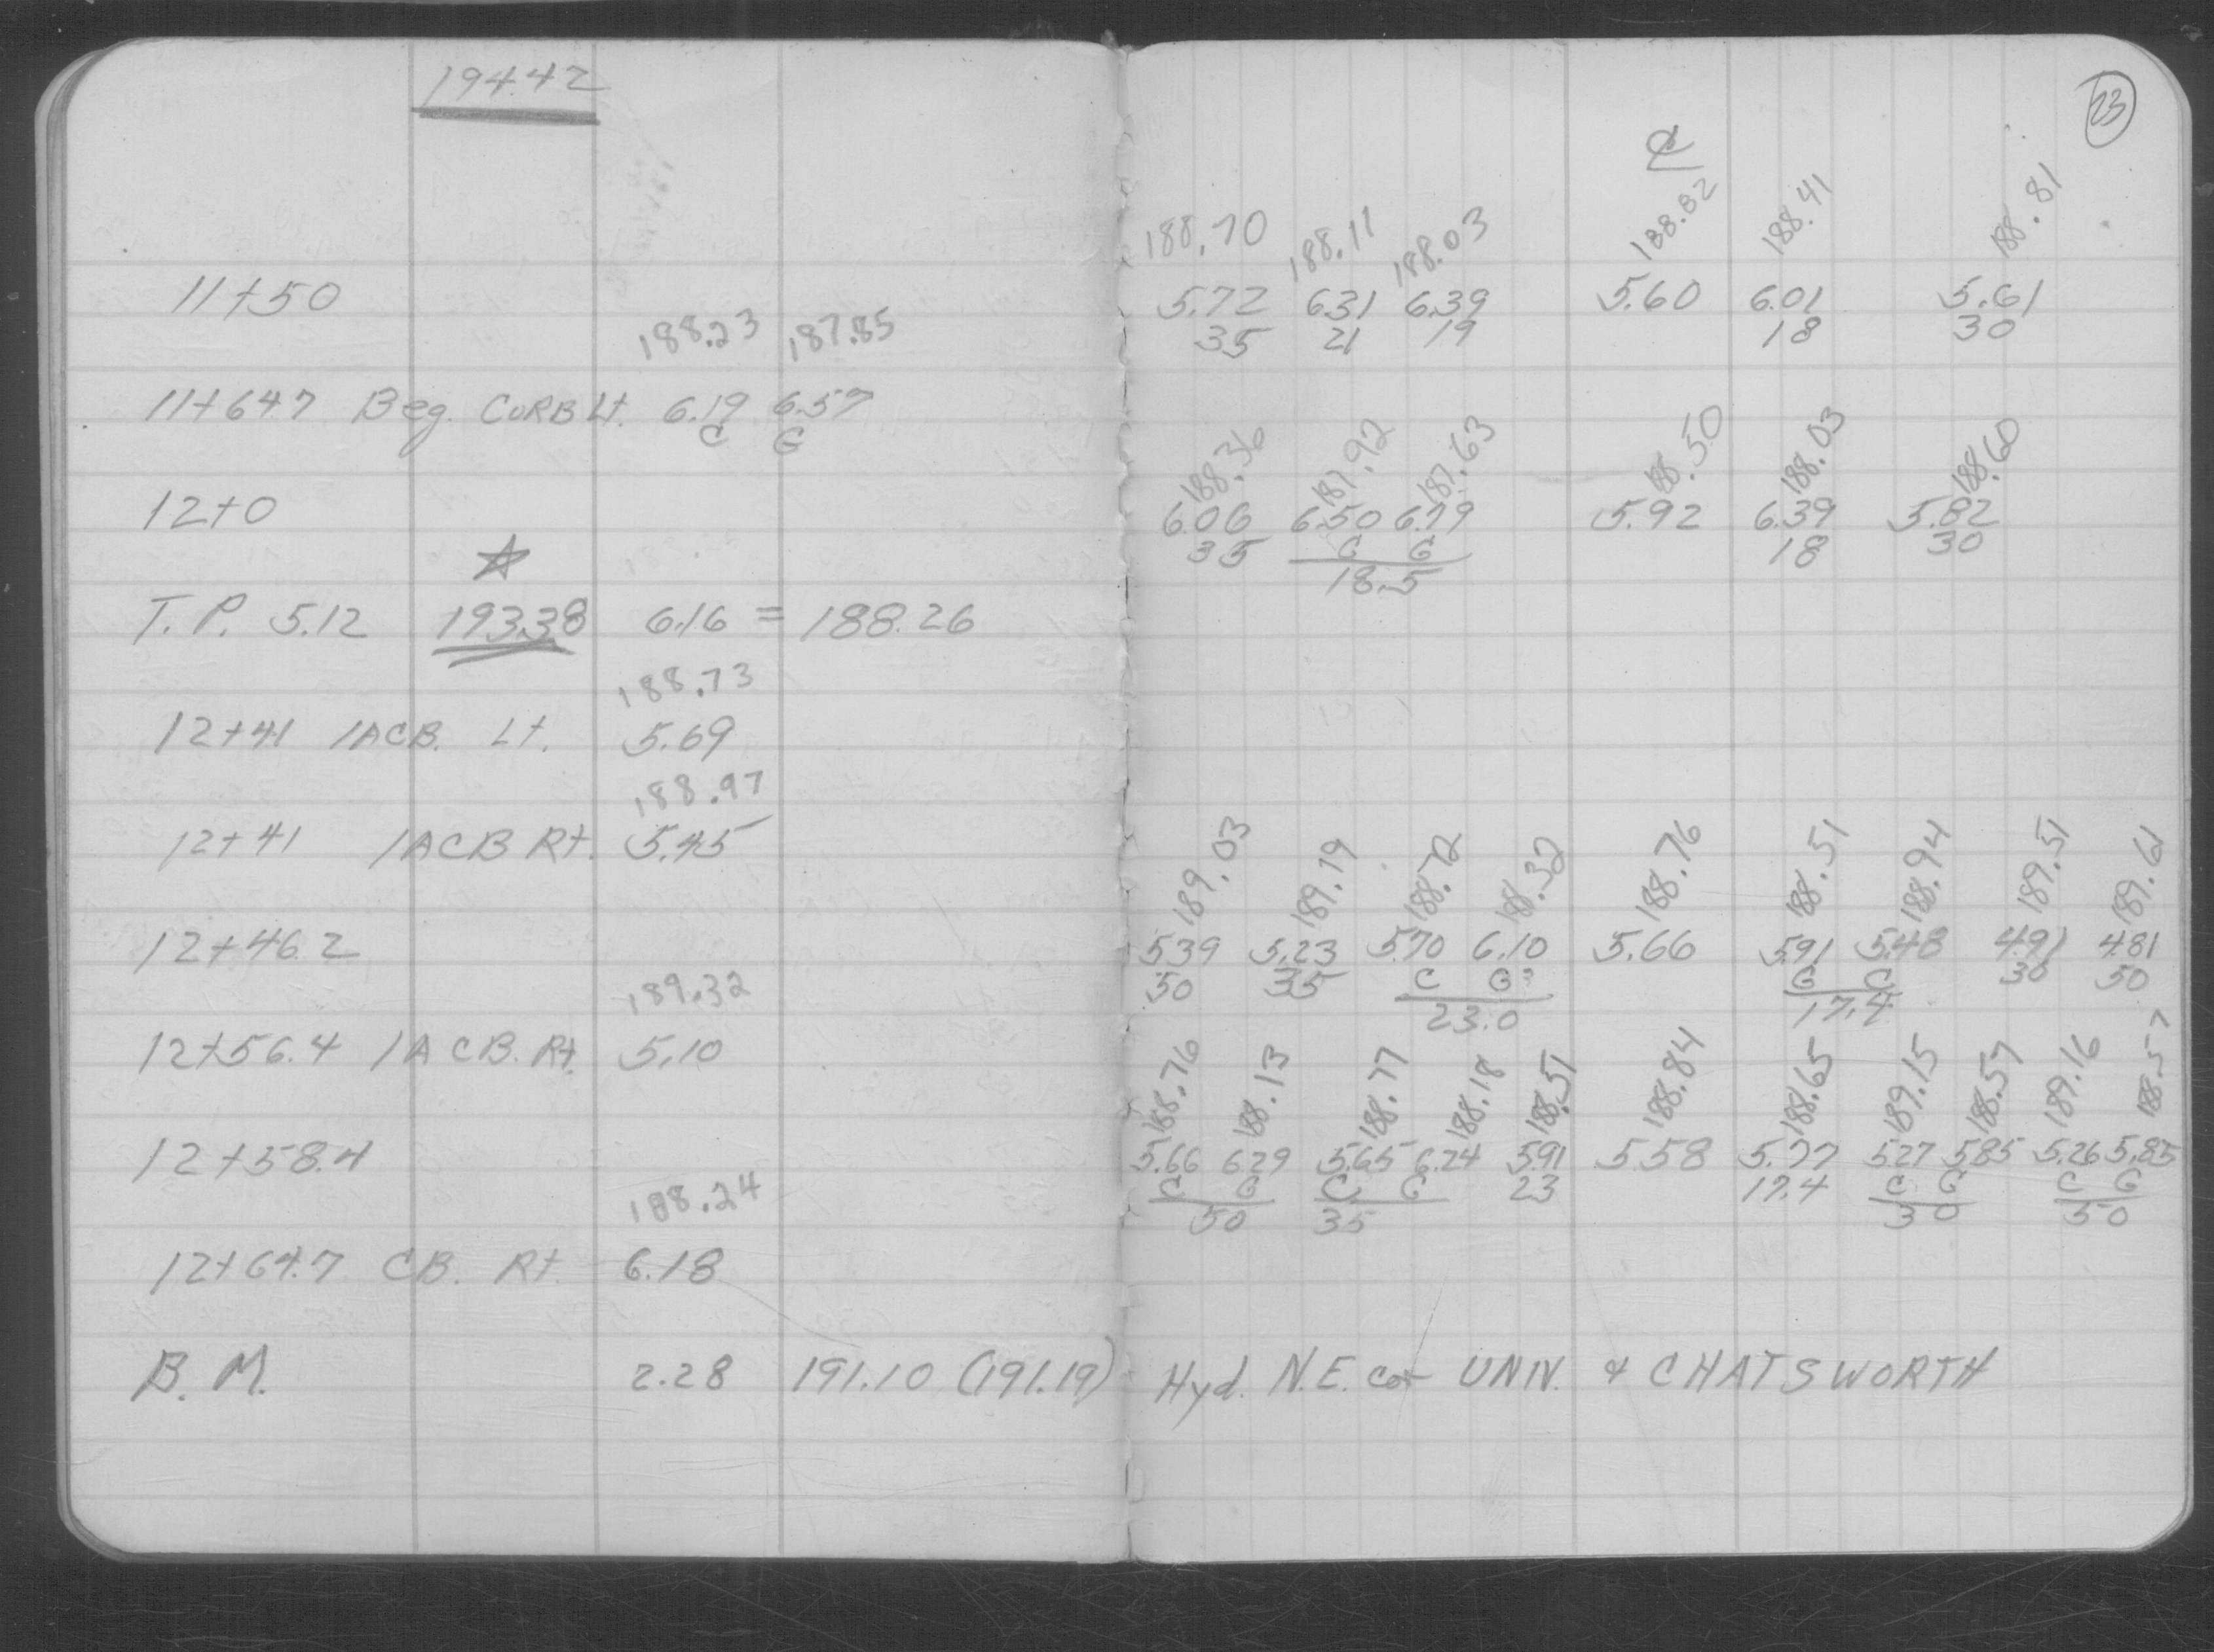 194.42
23
℄
188.70 188.11 188.03 188.82 188.41 188.81
11+50 5.72 6.31 6.39 5.60 6.01 5.61
35 21 19 18 30
188.23 187.85
11+64.7 Beg. CURB Lt. 6.19 6.57
C G
188.36 187.92 187.63 188.50 188.03 188.60
12+0 6.06 6.50 6.79 5.92 6.39 5.82
35 C G 18 30
18.5
T.P. 5.12 193.38 6.16 = 188.26
188.73
12+41 IACB. Lt. 5.69
188.97
12+41 IACB Rt. 5.45
189.03 189.19 188.72 188.32 188.76 188.51 188.94 189.51 189.61
12+46.2 5.39 5.23 5.70 6.10 5.66 5.91 5.48 4.91 4.81
50 35 C G G C 30 50
23.0 17.4
189.32
12+56.4 IACB. Rt. 5.10
188.76 188.13 188.77 188.18 188.51 188.84 188.65 189.15 188.57 189.16 188.57
12+58.4 5.66 6.29 5.65 6.24 5.91 5.58 5.77 5.27 5.85 5.26 5.85
C G C G 23 17.4 C G C G
50 35 30 50
188.24
12+64.7 CB. Rt. 6.18
B.M. 2.28 191.10 (191.19) Hyd. N.E. cor UNIV. & CHATSWORTH